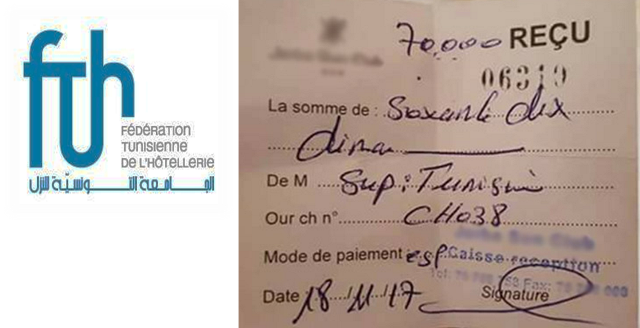 fth
FÉDÉRATION
TUNISIENNE
DE L'HÔTELLERIE
الجامعة التونسيّة للنزل
70,000 REÇU
06319
La somme de : Soixante dix
dinar
De M Sup: Tunisie
Our ch n° CH038
Mode de paiement esp Caisse reception
Date 18/11/17 Signature